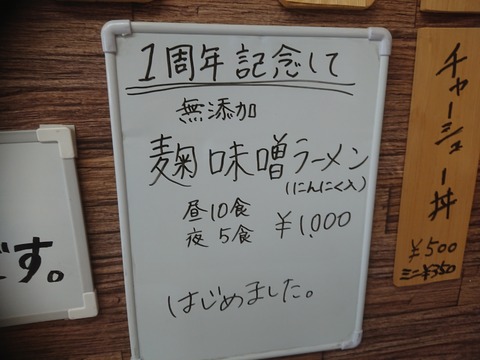 1周年記念して
無添加
麹味噌ラーメン
(にんにく入)
昼10食
夜5食
¥1,000
はじめました。
チャーシュー丼
¥500
ミニ¥350
です。